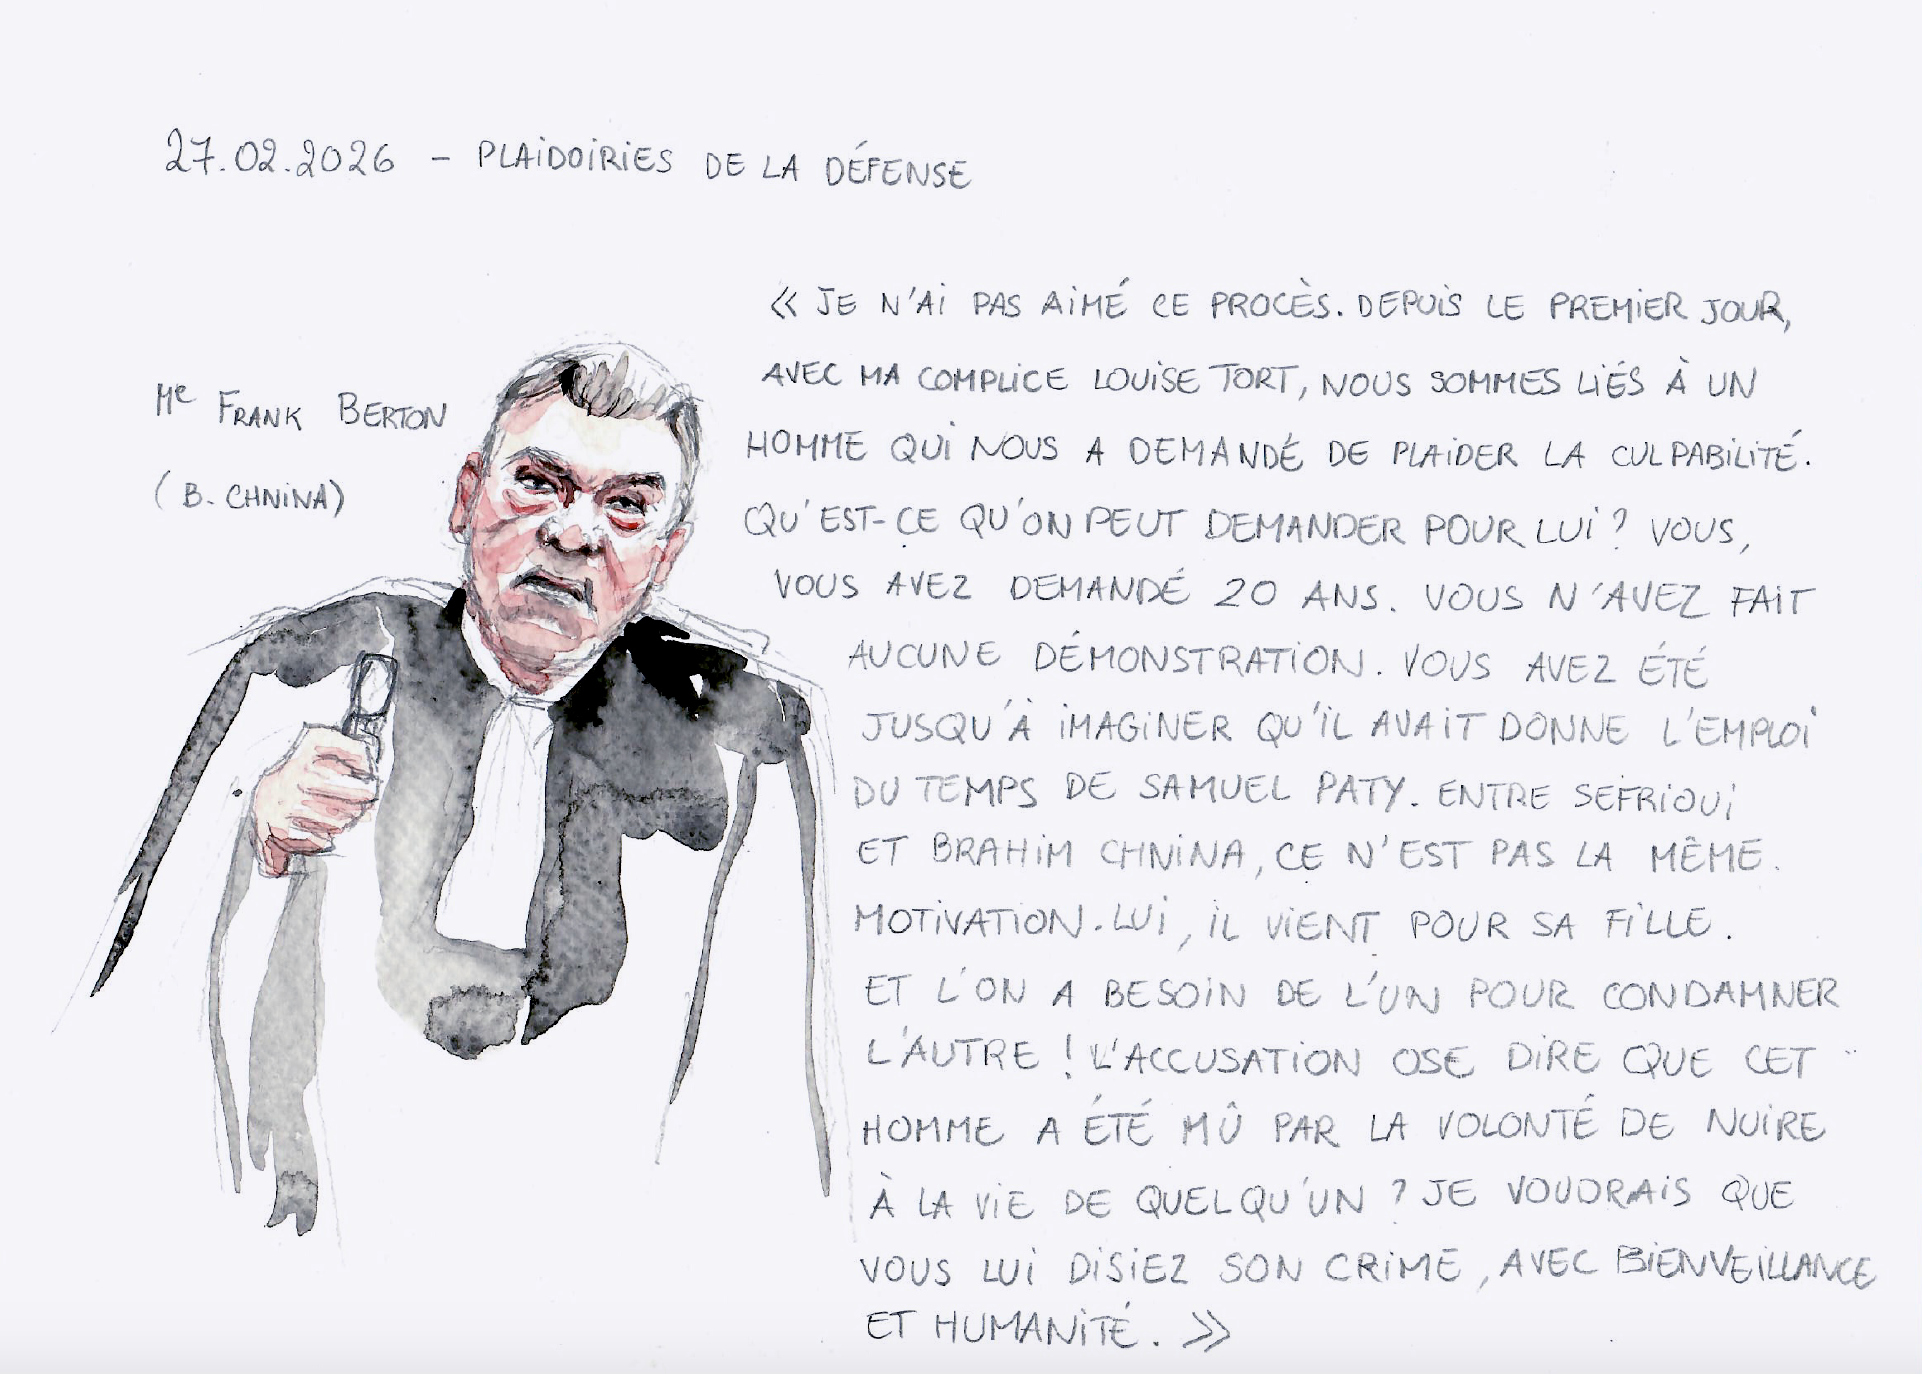 27.02.2026 - PLAIDOIRIES DE LA DÉFENSE
Me FRANK BERTON
(B. CHNINA)
« JE N'AI PAS AIMÉ CE PROCÈS. DEPUIS LE PREMIER JOUR,
AVEC MA COMPLICE LOUISE TORT, NOUS SOMMES LIÉS À UN
HOMME QUI NOUS A DEMANDÉ DE PLAIDER LA CULPABILITÉ.
QU'EST-CE QU'ON PEUT DEMANDER POUR LUI ? VOUS,
VOUS AVEZ DEMANDÉ 20 ANS. VOUS N'AVEZ FAIT
AUCUNE DÉMONSTRATION. VOUS AVEZ ÉTÉ
JUSQU'À IMAGINER QU'IL AVAIT DONNE L'EMPLOI
DU TEMPS DE SAMUEL PATY. ENTRE SEFRIOUI
ET BRAHIM CHNINA, CE N'EST PAS LA MÊME.
MOTIVATION. LUI, IL VIENT POUR SA FILLE.
ET L'ON A BESOIN DE L'UN POUR CONDAMNER
L'AUTRE ! L'ACCUSATION OSE DIRE QUE CET
HOMME A ÉTÉ MÛ PAR LA VOLONTÉ DE NUIRE
À LA VIE DE QUELQU'UN ? JE VOUDRAIS QUE
VOUS LUI DISIEZ SON CRIME, AVEC BIENVEILLANCE
ET HUMANITÉ. »